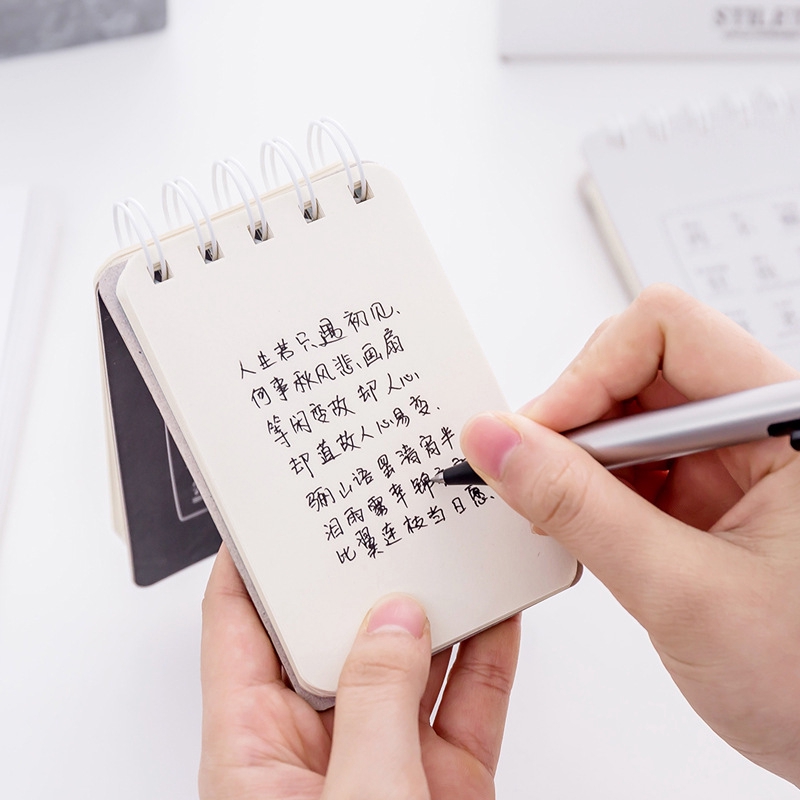 STILE
人生若只遇初见、
何事秋风悲、画扇
等闲变故却人心
却道故人心易变.
骊山语罢清宵半
泪雨零
比翼连枝当日愿、